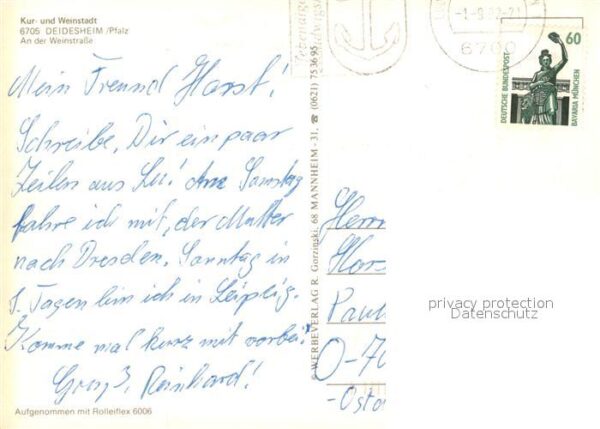 Kur- und Weinstadt
6705 DEIDESHEIM /Pfalz
An der Weinstraße
Mein Freund Horst!
Schreibe Dir ein paar
Zeilen aus Lu! Am Samstag
fahre ich mit, der Mutter
nach Dresden. Sonntag in
8 Tagen bin ich in Leipzig.
Komme mal kurz mit vorbei!
Gruß, Reinhard!
Aufgenommen mit Rolleiflex 6006
© WERBEVERLAG R. Gorzinski, 68 MANNHEIM - 31, ☎ (0621) 75 36 95
-1-9.92-21
6700
60
DEUTSCHE BUNDESPOST
BAVARIA MÜNCHEN
Herrn
Hors
Paul
O-70
-Osta
privacy protection
Datenschutz